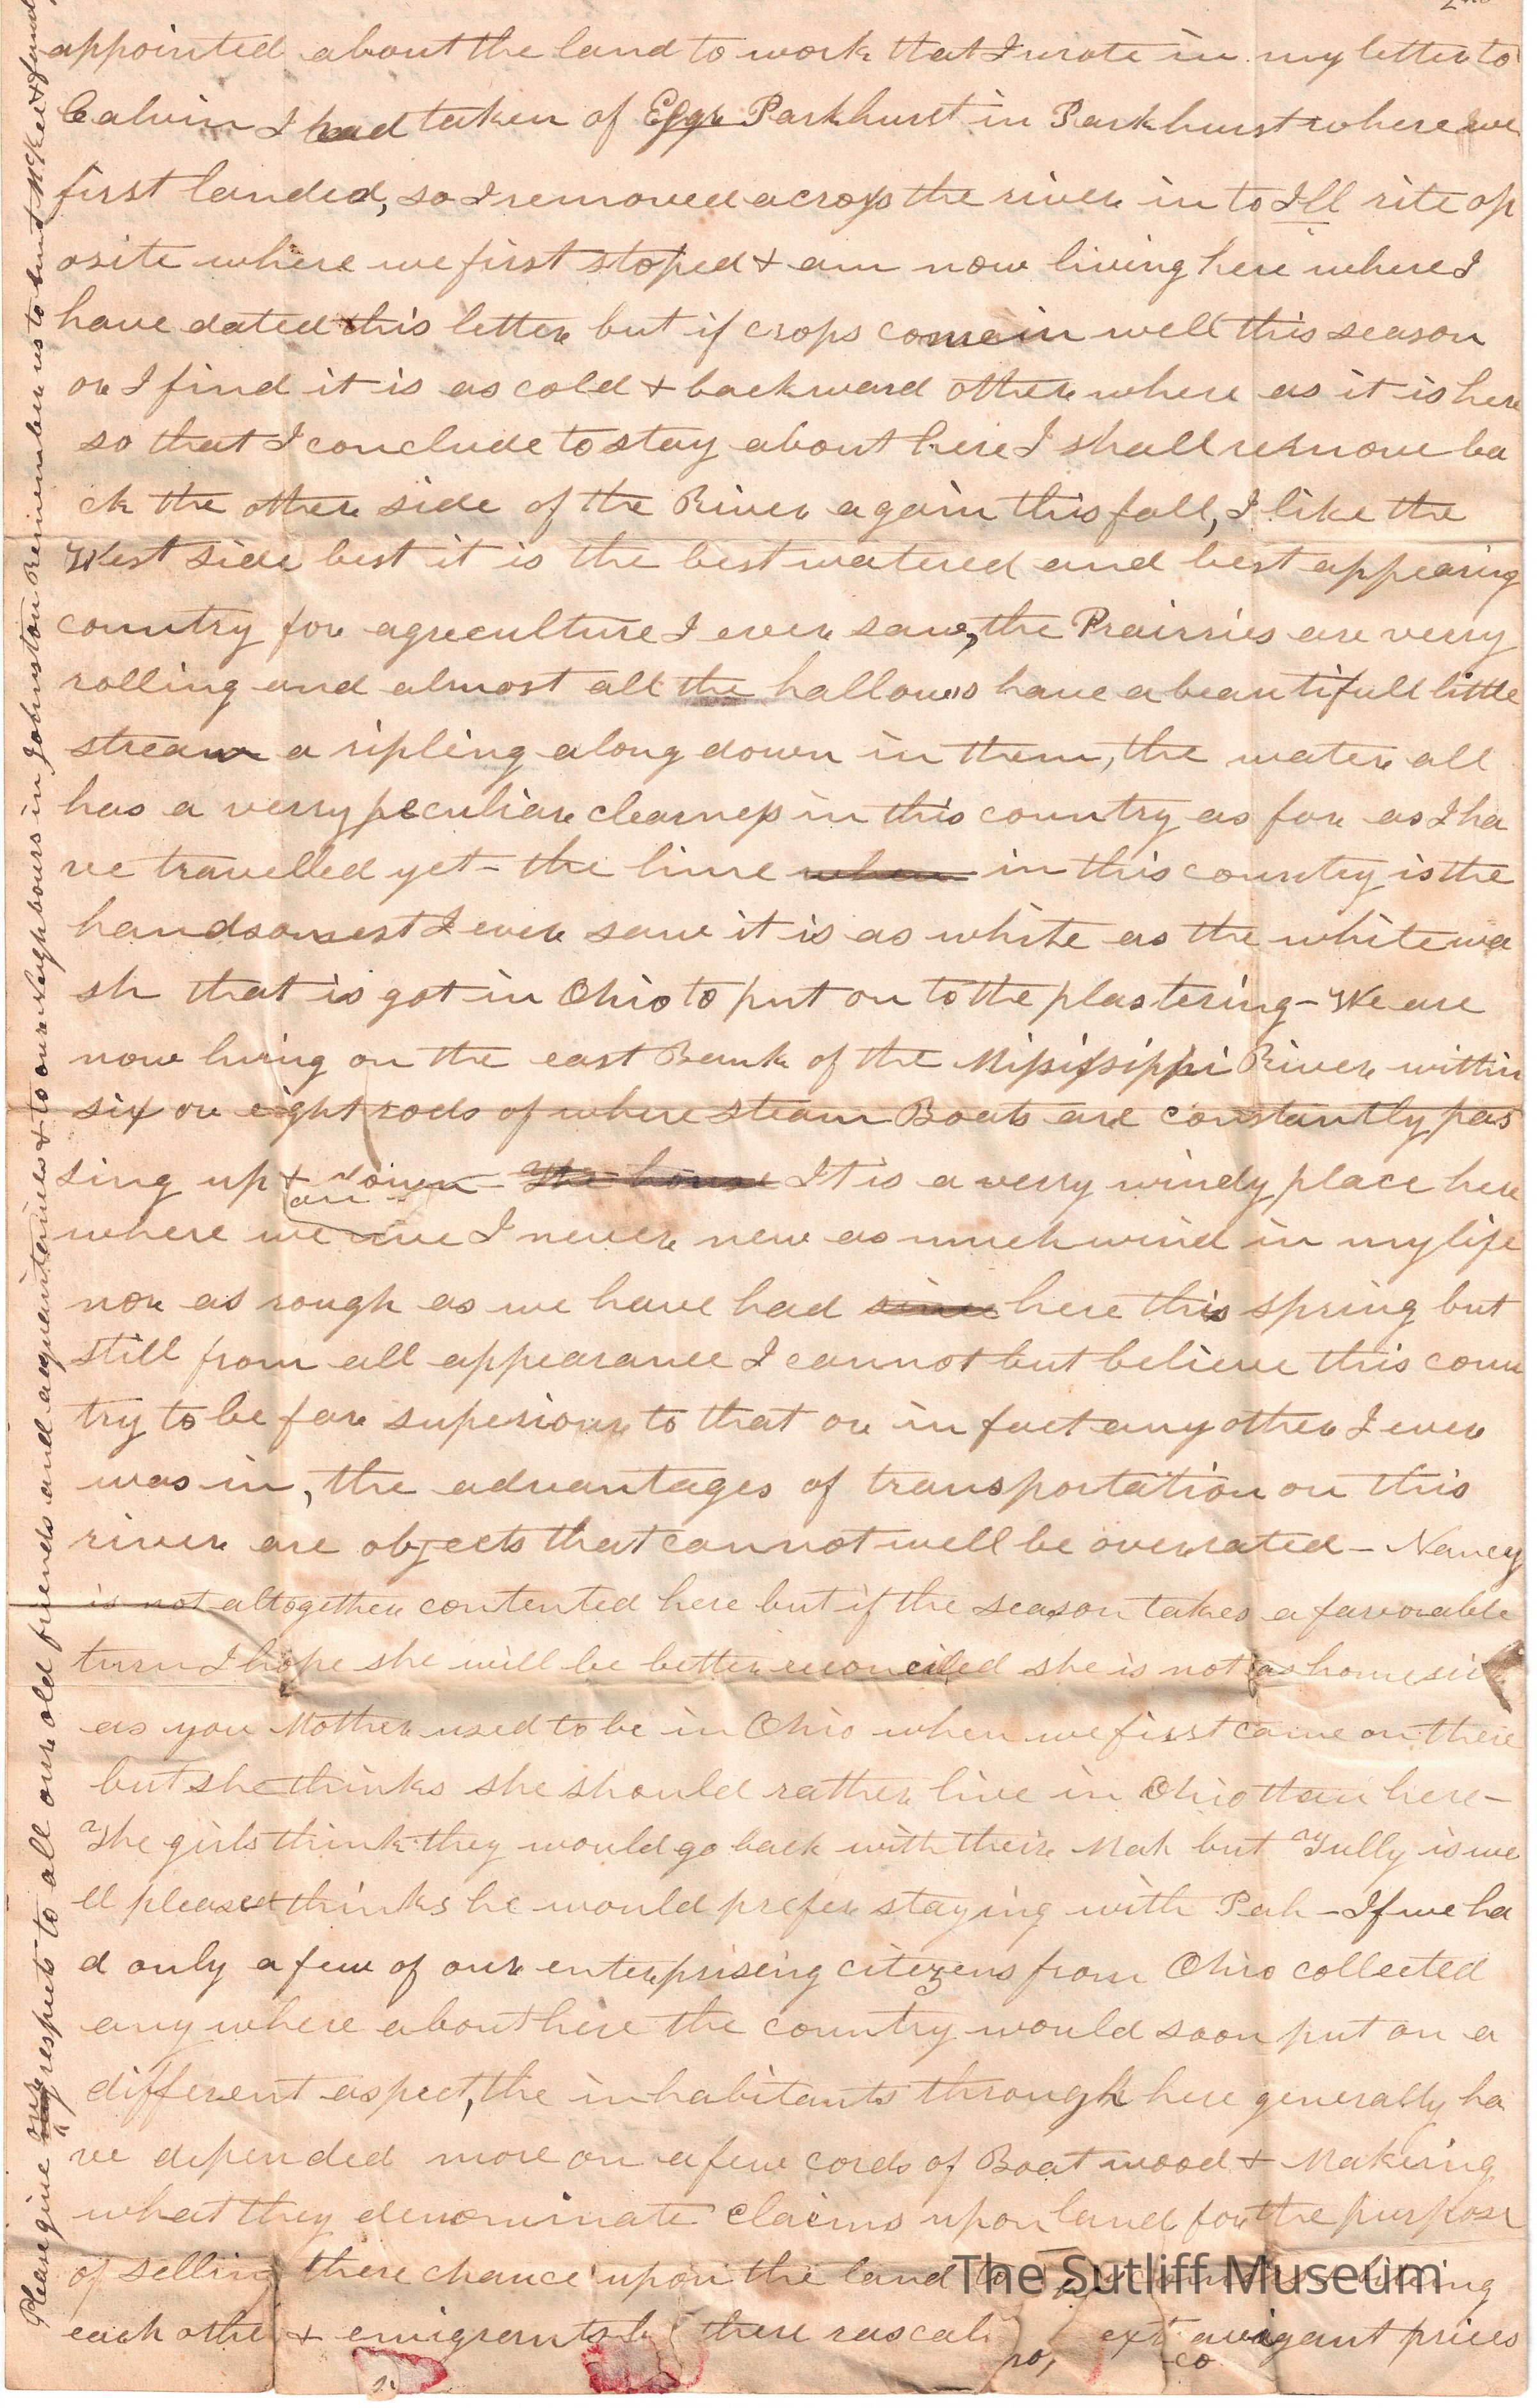 2nd
appointed about the land to work that I wrote in my letter to
Calvin I had taken of Esqr Parkhurst in Parkhurst where we
first landed, so I removed across the river in to Ill rite op
osite where we first stoped & am now living here where I
have dated this letter but if crops come in well this season
or I find it is as cold & backward other where as it is here
so that I conclude to stay about here I shall remove ba
ck the other side of the River again this fall, I like the
West side best it is the best watered and best appearing
country for agreculture I ever saw, the Prairies are verry
rolling and almost all the hallows have a beautifull little
stream a ripling along down in them, the water all
has a verry peculiar clearness in this country as far as I ha
ve travelled yet - the lime when in this country is the
handsomest I ever saw it is as white as the white wa
sh that is got in Ohio to put on to the plastering - We are
now living on the east Bank of the Missisippi River within
six or eight rods of where steam Boats are constantly pas
sing up & down - The house It is a verry windy place here
where we are I never new as much wind in my life
nor as rough as we have had since here this spring but
still from all appearance I cannot but believe this coun
try to be far superiour to that or in fact any other I ever
was in, the advantages of transportation on this
river are objects that cannot well be overrated - Nancy
is not altogether contented here but if the season takes a favorable
turn I hope she will be better reconciled she is not as homesick
as you Mother used to be in Ohio when we first came on there
but she thinks she should rather live in Ohio than here -
The girls think they would go back with their Mah but Tully is we
ll pleased thinks he would prefer staying with Pah - If we ha
d only a few of our enterprising citizens from Ohio collected
any where about here the country would soon put on a
different aspect, the inhabitants through here generally ha
ve depended more on a few cords of Boat wood & Making
what they denominate claims upon land for the purpose
of selling there chance upon the land
each other & emigrants there rascal extravigant prices
Please give our respects to all our old friends and acquaintances & to our Neighbours in Johnston Remember us to Aunt McKee &
The Sutliff Museum